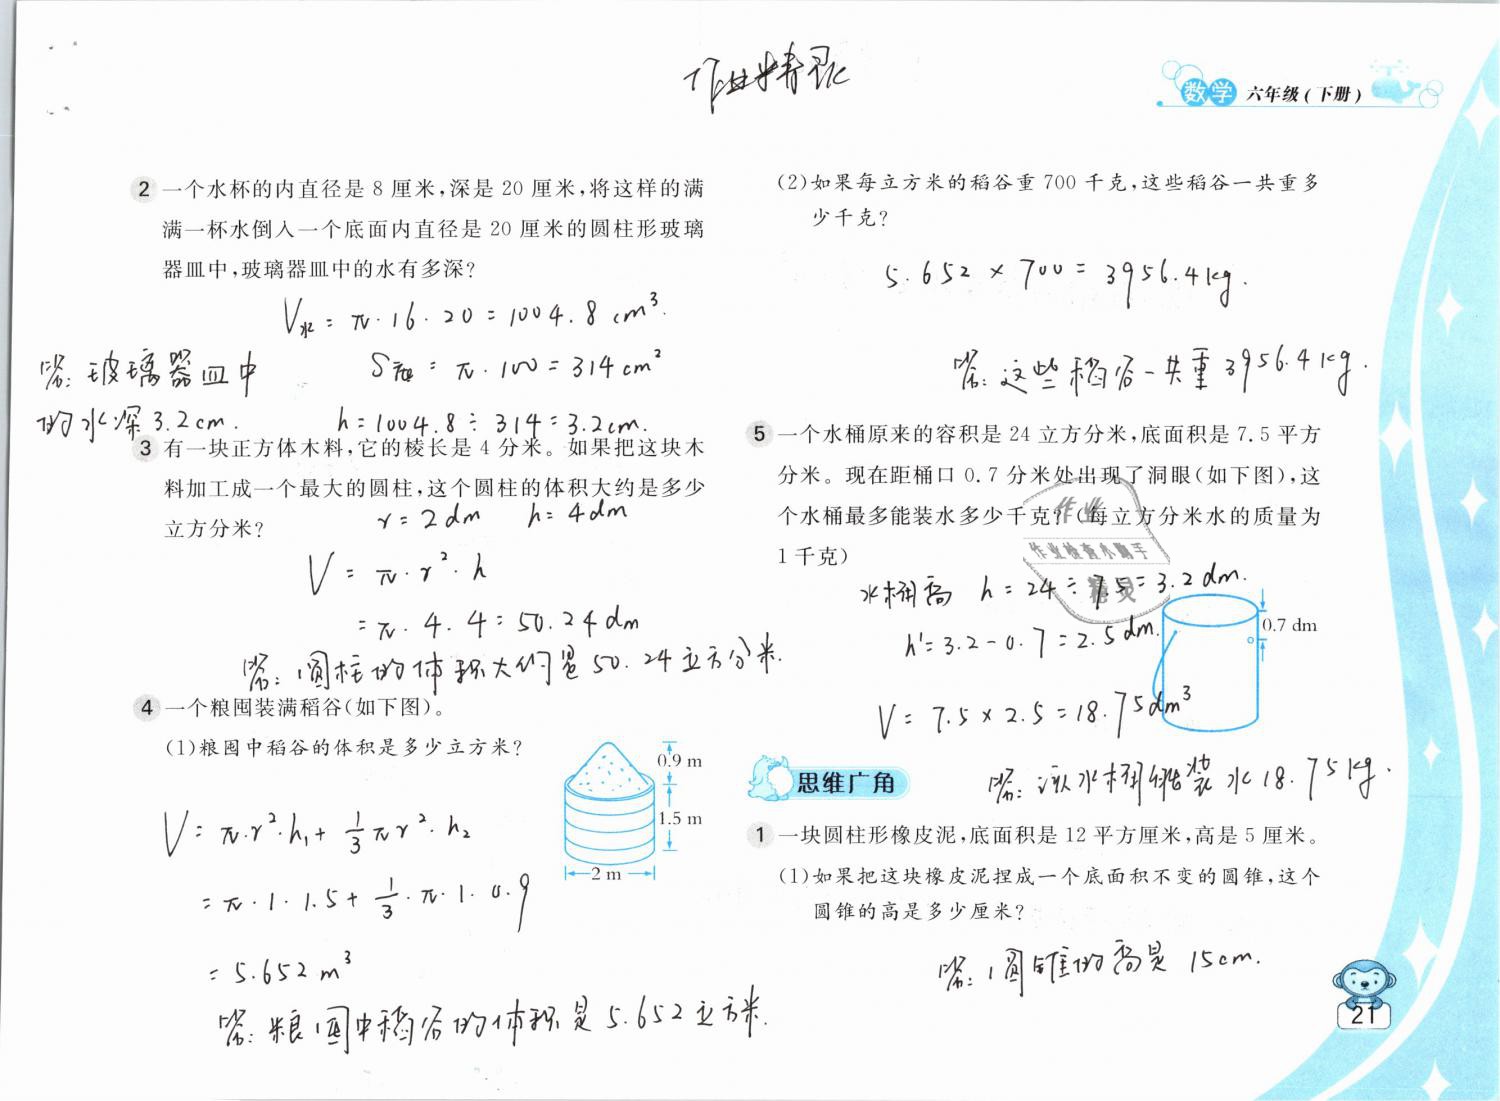 作业精灵
数学 六年级(下册)
2 一个水杯的内直径是 8 厘米,深是 20 厘米,将这样的满
满一杯水倒入一个底面内直径是 20 厘米的圆柱形玻璃
器皿中,玻璃器皿中的水有多深?
V水 = π·16·20 = 1004.8 cm³.
S = π·100 = 314 cm²
h = 1004.8 ÷ 314 = 3.2cm.
答: 玻璃器皿中
的水深 3.2cm.
3 有一块正方体木料,它的棱长是 4 分米。如果把这块木
料加工成一个最大的圆柱,这个圆柱的体积大约是多少
立方分米?
r = 2dm h = 4dm
V = π·r²·h
= π·4·4 = 50.24dm
答: 圆柱的体积大约是 50.24立方分米.
4 一个粮囤装满稻谷(如下图)。
(1)粮囤中稻谷的体积是多少立方米?
0.9 m
1.5 m
2 m
V = π·r²·h₁ + 1/3 πr²·h₂
= π·1·1.5 + 1/3·π·1·0.9
= 5.652 m³
答: 粮囤中稻谷的体积是 5.652立方米.
(2)如果每立方米的稻谷重 700 千克,这些稻谷一共重多
少千克?
5.652 × 700 = 3956.4kg.
答: 这些稻谷一共重 3956.4kg.
5 一个水桶原来的容积是 24 立方分米,底面积是 7.5 平方
分米。现在距桶口 0.7 分米处出现了洞眼(如下图),这
个水桶最多能装水多少千克?(每立方分米水的质量为
1 千克)
作业
作业检查小助手
精灵
水桶高 h = 24 ÷ 7.5 = 3.2 dm.
h' = 3.2 - 0.7 = 2.5 dm.
0.7 dm
V = 7.5 × 2.5 = 18.75dm³
答: 该水桶能装水 18.75kg.
思维广角
1 一块圆柱形橡皮泥,底面积是 12 平方厘米,高是 5 厘米。
(1)如果把这块橡皮泥捏成一个底面积不变的圆锥,这个
圆锥的高是多少厘米?
答: 圆锥的高是 15cm.
21